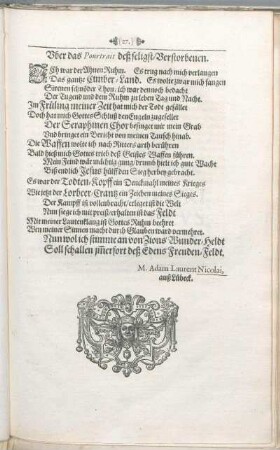 Vber das Pourtrait deß seligst-Verstorbenen.
ICh war der Ahnen Ruhm. Es trug nach mich verlangen
Das gantze Cimber-Land. Es wolte zwar mich fangen
Sirenen schnöder Thon. ich war dennoch bedacht
Der Tugend und dem Ruhm zu leben Tag und Nacht.
Im Früling meiner Zeit hat mich der Tod gefället
Doch hat mich Gottes Schluß den Engeln zugesellet
Der Seraphinen Chor besinget mir mein Grab
Und bringet ein Bericht von meinen Tausch hinab.
Die Waffen wolte ich nach Ritters arth berühren
Bald hieß mich Gottes trieb deß Geistes Waffen führen.
Mein Feind war mächtig gung/ drumb hielt ich gute Wacht
Biß endlich Jesus hülff den Sieg herbey gebracht.
Es war der Todten-Kopff ein Denckmahl meines Krieges
Wie jetzt der Lorbeer-Crantz ein Zeichen meines Sieges.
Der Kampff ist vollenbracht/ erleget ist die Welt
Nun siege ich mit preiß/ erhalten ist das Feldt
Mit meiner Lautenklang ist Gottes Ruhm beehret
Bey meiner Sinnen macht durch Glauben ward vermehret.
Nun wol ich stimme an von Zions Wunder-Heldt
Soll schallen im̃erfort deß Edens Freuden-Feldt.
M. Adam Laurent Nicolai,
auß Lübeck.